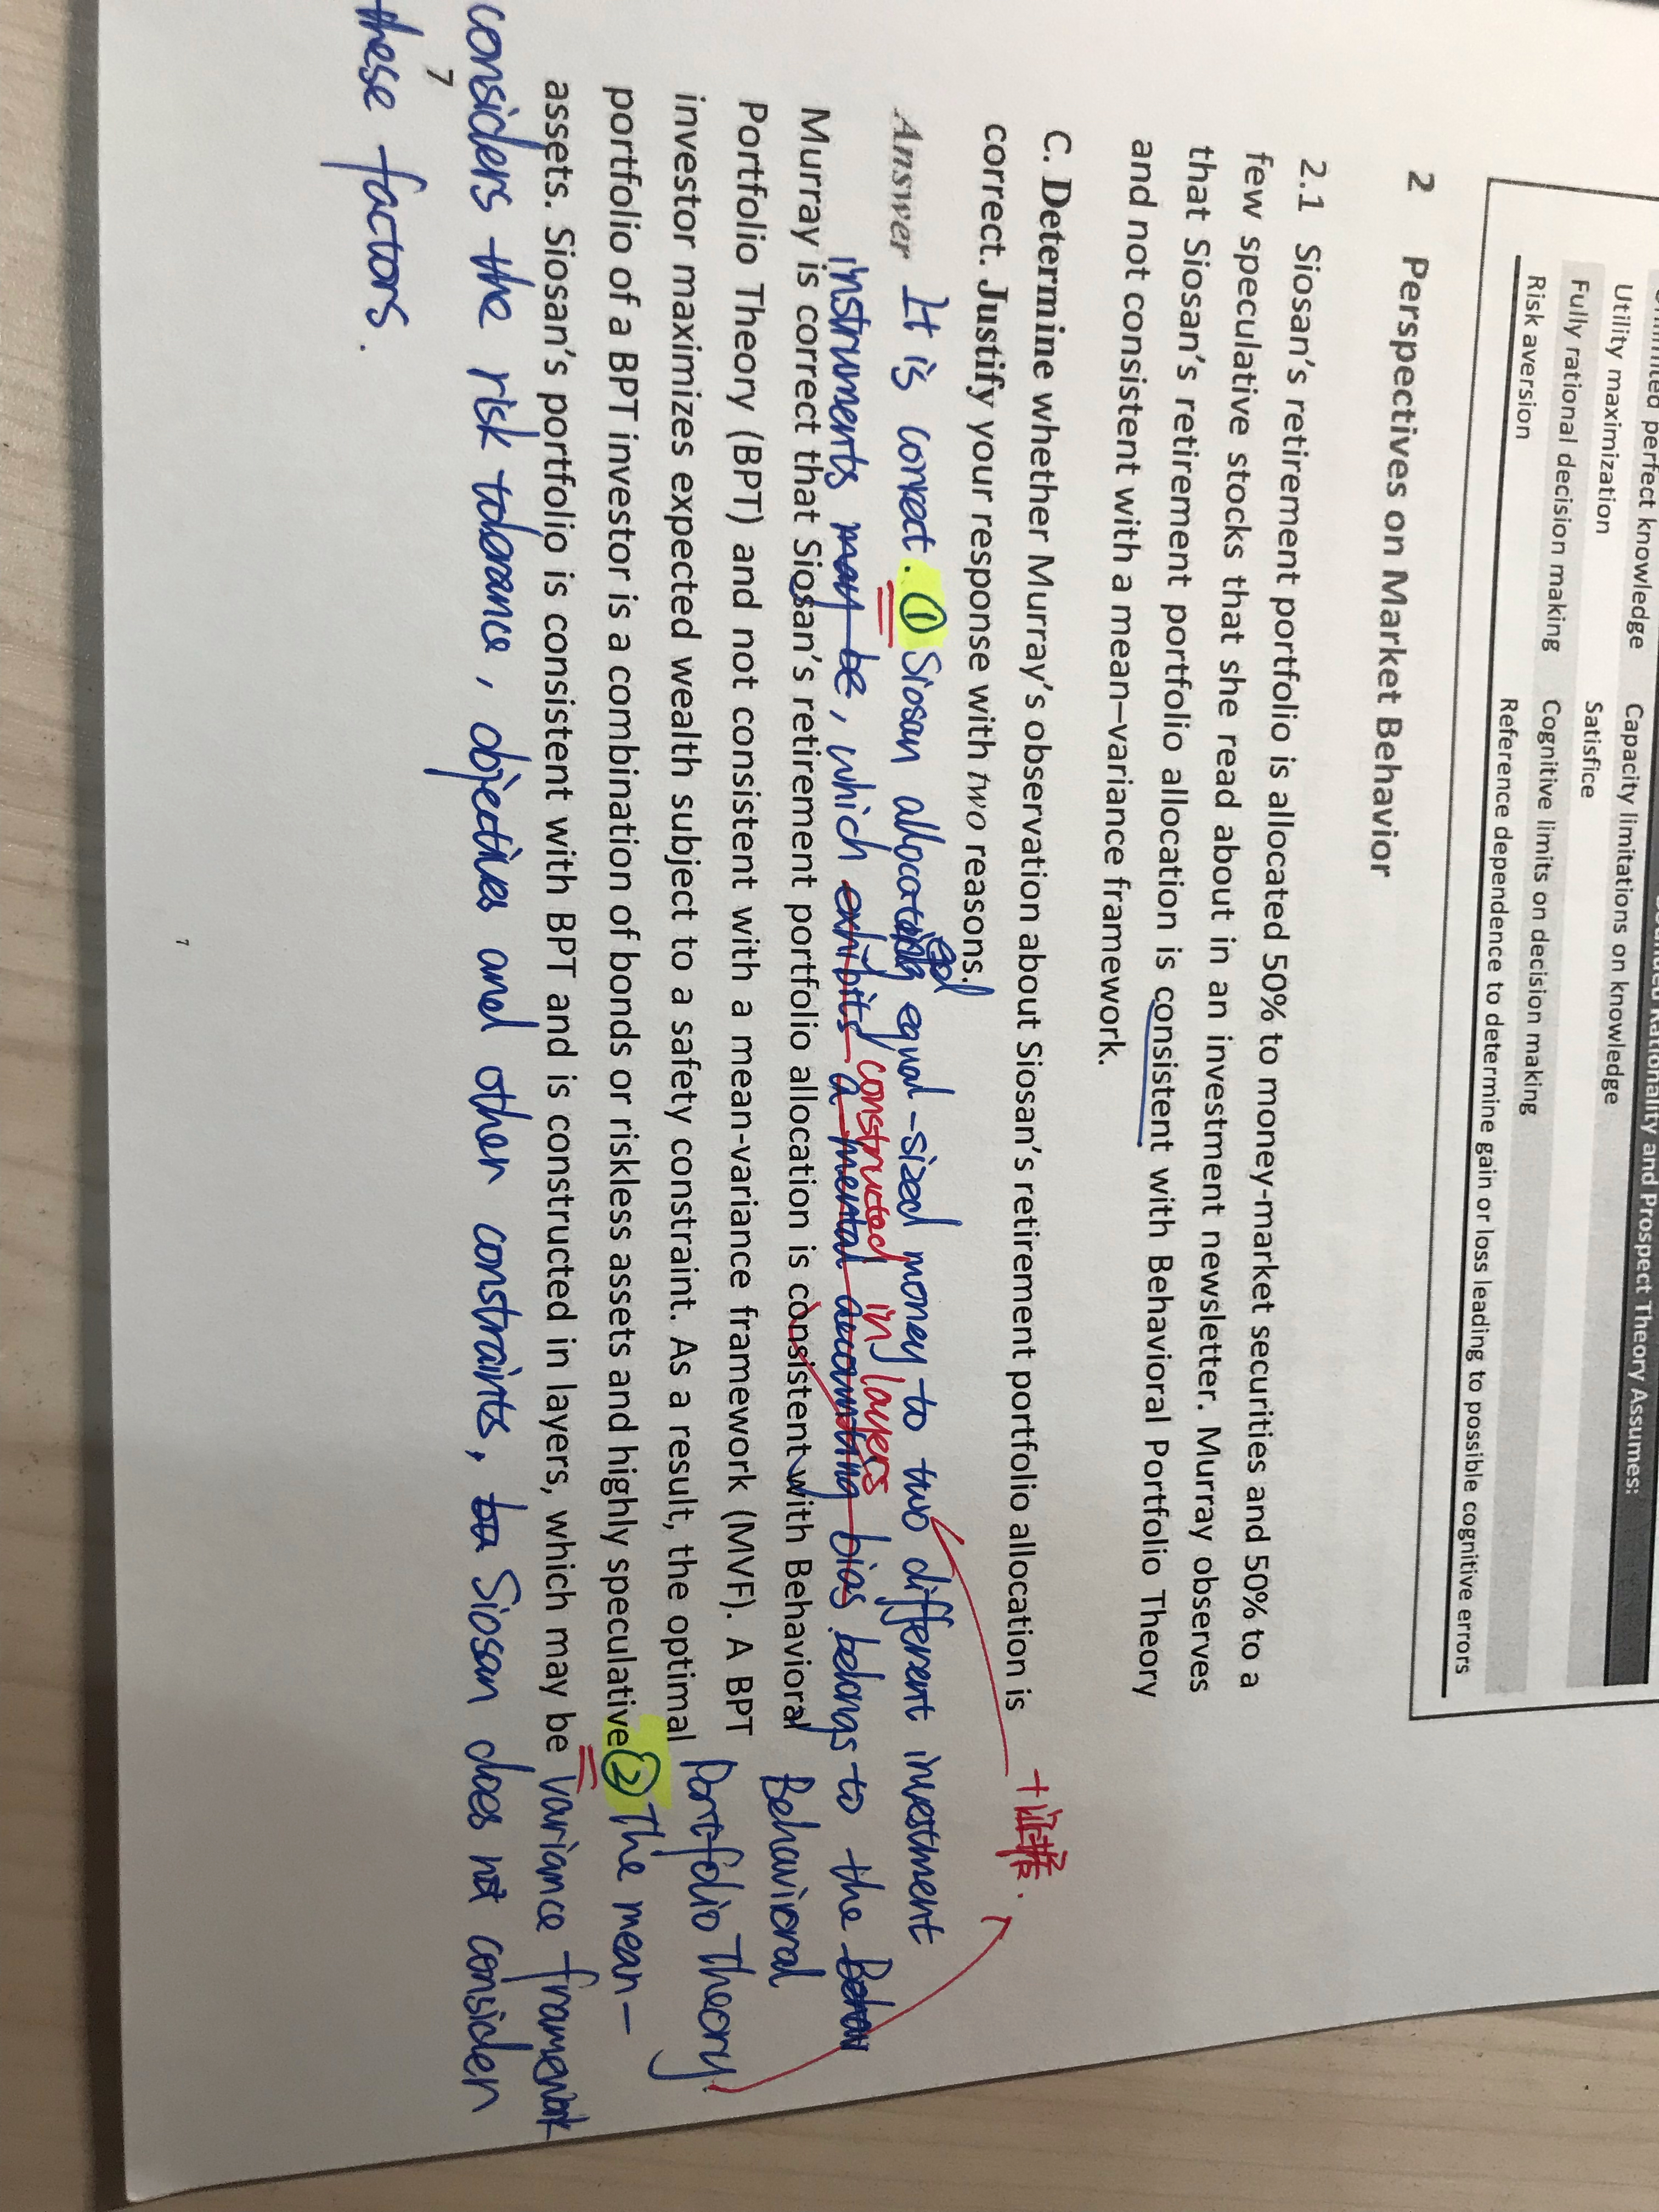 Utility maximization Satisfice
perfect knowledge Capacity limitations on knowledge
Rationality and Prospect Theory Assumes:
Fully rational decision making Cognitive limits on decision making
Risk aversion Reference dependence to determine gain or loss leading to possible cognitive errors
2 Perspectives on Market Behavior
2.1 Siosan's retirement portfolio is allocated 50% to money-market securities and 50% to a
few speculative stocks that she read about in an investment newsletter. Murray observes
that Siosan's retirement portfolio allocation is consistent with Behavioral Portfolio Theory
and not consistent with a mean–variance framework.
C. Determine whether Murray's observation about Siosan's retirement portfolio allocation is
correct. Justify your response with two reasons.
+证据.
Answer It is correct. ① Siosan allocated equal-sized money to two different investment
constructed in layers
instruments may be, which exhibits a mental accounting bias belongs to the
Murray is correct that Siosan's retirement portfolio allocation is consistent with Behavioral Behavioral
Portfolio Theory (BPT) and not consistent with a mean-variance framework (MVF). A BPT Portfolio Theory.
investor maximizes expected wealth subject to a safety constraint. As a result, the optimal
portfolio of a BPT investor is a combination of bonds or riskless assets and highly speculative ② The mean-
assets. Siosan's portfolio is consistent with BPT and is constructed in layers, which may be variance framework
considers the risk tolerance, objectives and other constraints, Siosan does not consider
7
these factors.
7